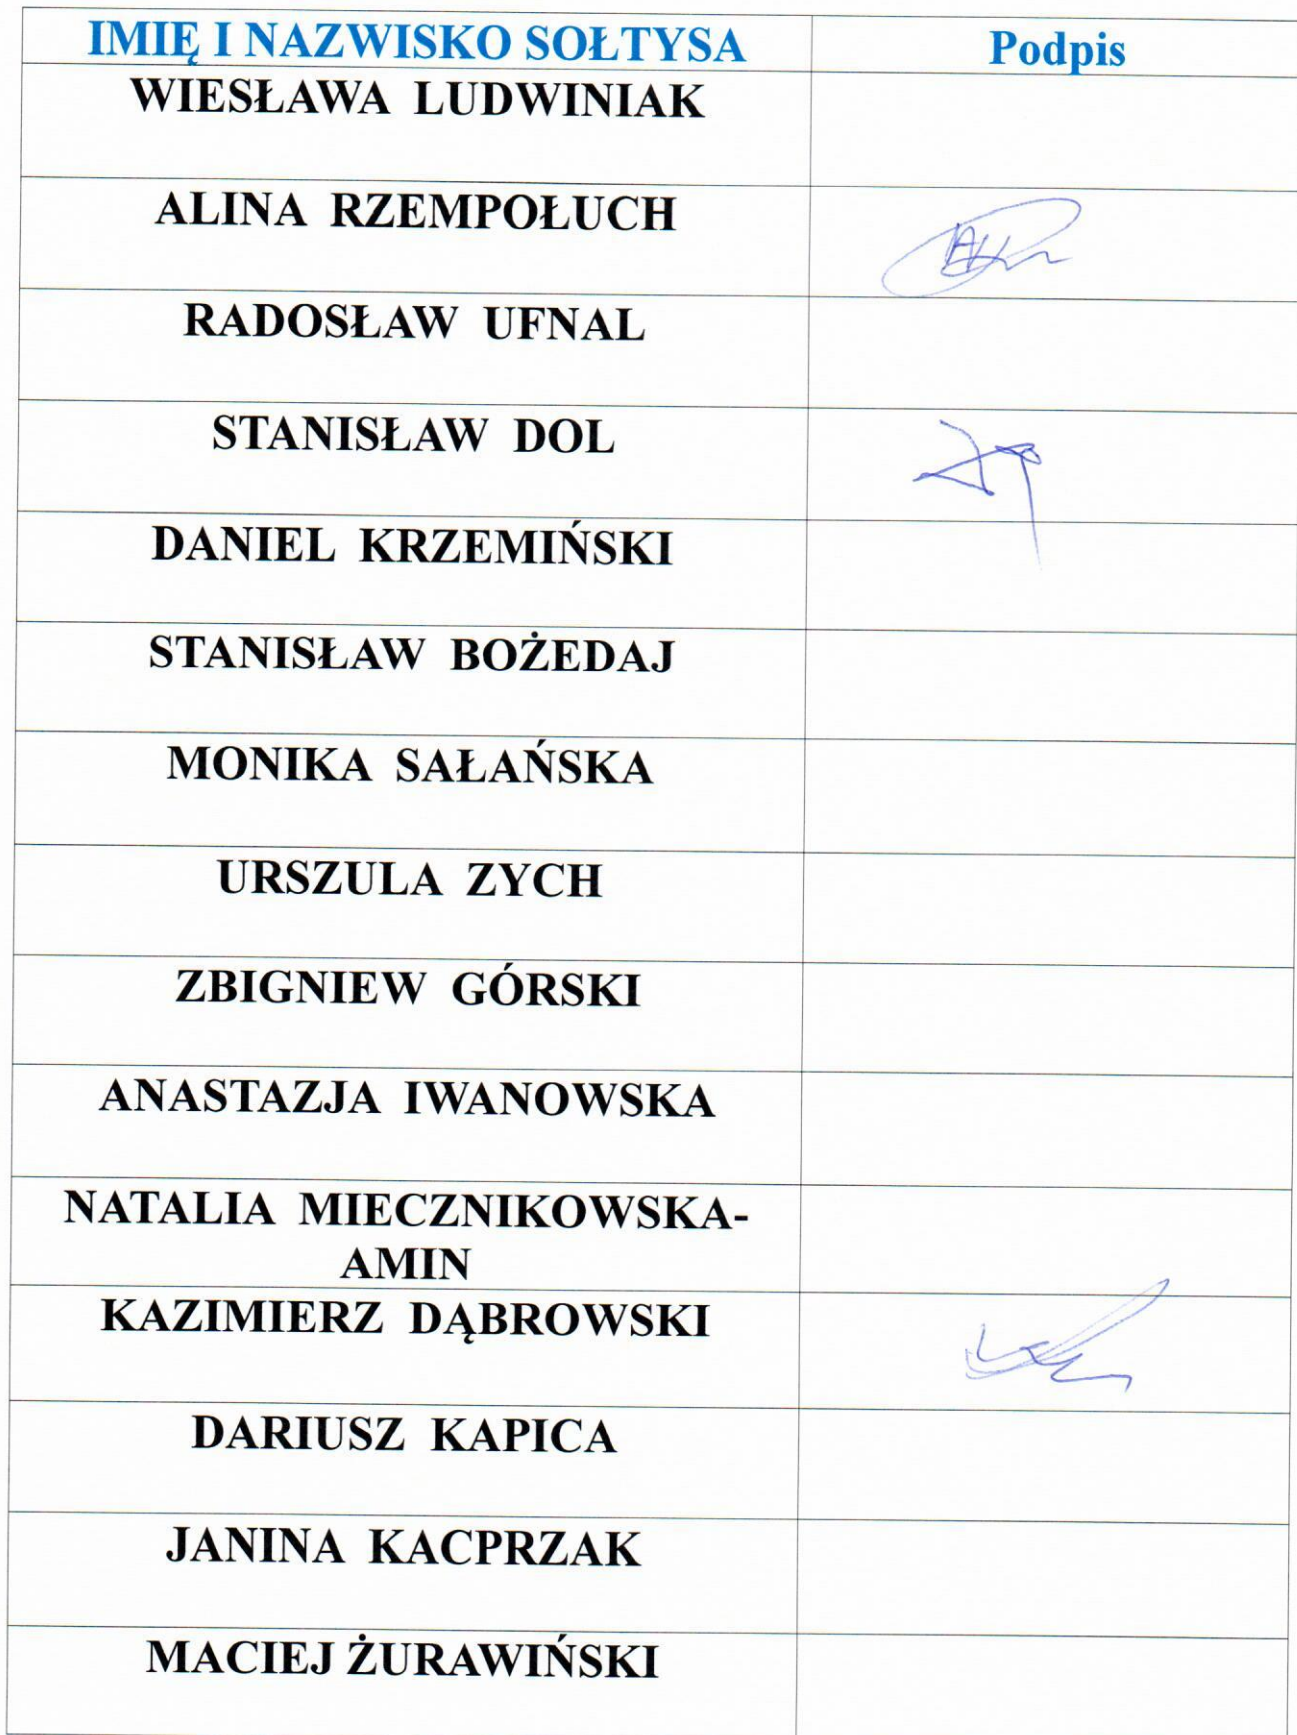 IMIĘ I NAZWISKO SOŁTYSA Podpis
WIESŁAWA LUDWINIAK
ALINA RZEMPOŁUCH
RADOSŁAW UFNAL
STANISŁAW DOL
DANIEL KRZEMIŃSKI
STANISŁAW BOŻEDAJ
MONIKA SAŁAŃSKA
URSZULA ZYCH
ZBIGNIEW GÓRSKI
ANASTAZJA IWANOWSKA
NATALIA MIECZNIKOWSKA-
AMIN
KAZIMIERZ DĄBROWSKI
DARIUSZ KAPICA
JANINA KACPRZAK
MACIEJ ŻURAWIŃSKI